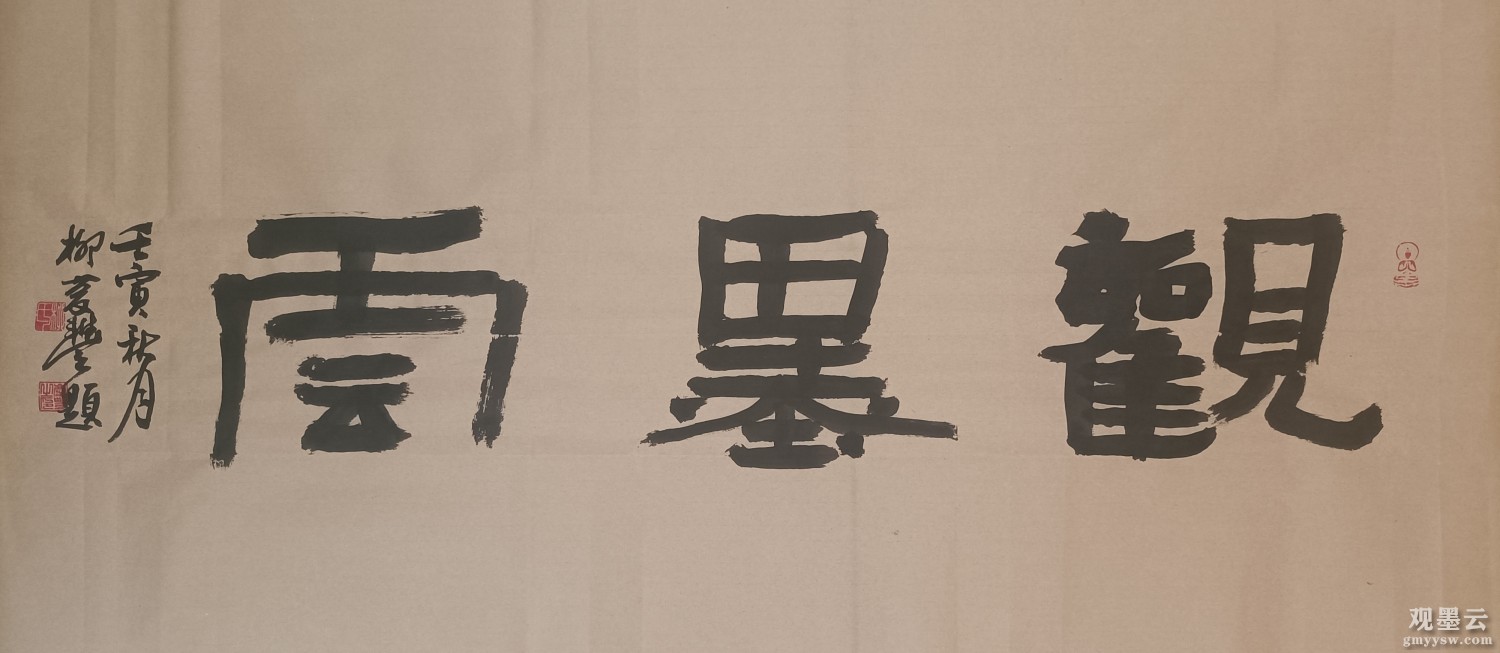 觀墨雲
壬寅秋月
柳慶豐題
观墨云
gmyysw.com